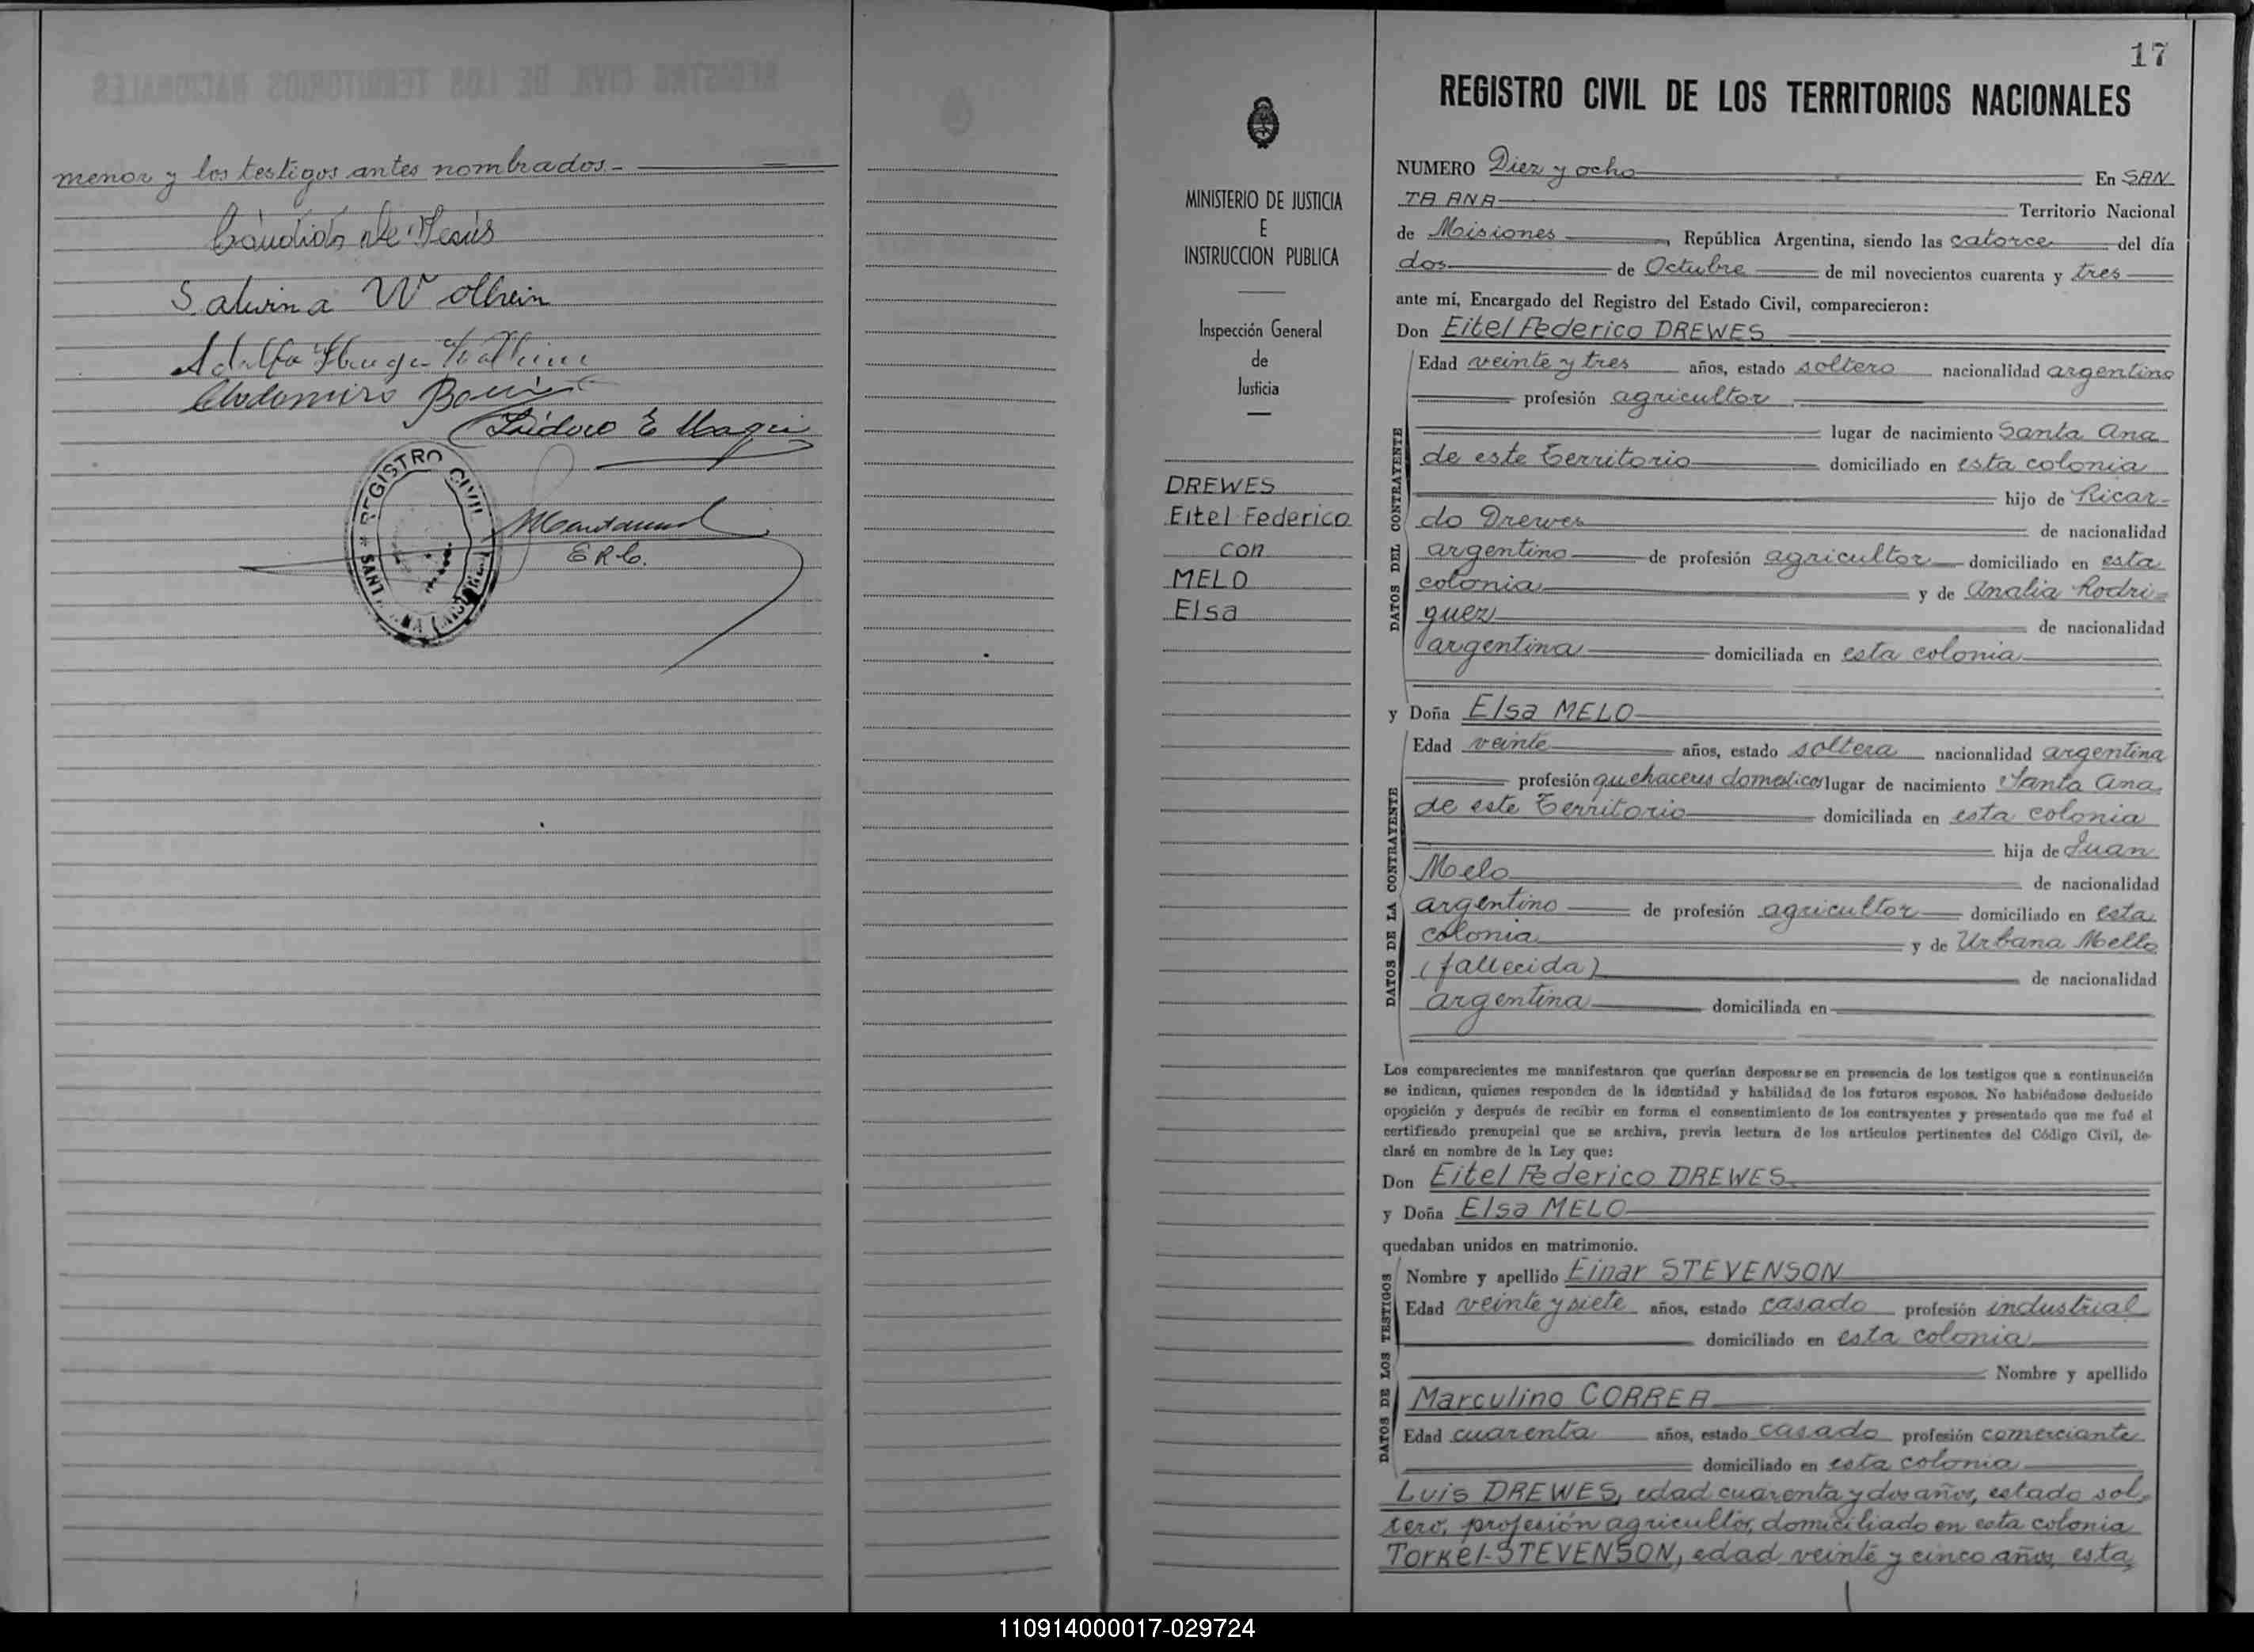 menor y los testigos antes nombrados.-
de Jesús
Salvina Wollhein
Adolfo
Clodomiro
Isidoro E
REGISTRO CIVIL
SANTA ANA (MISIONES)
E R C.
17
REGISTRO CIVIL DE LOS TERRITORIOS NACIONALES
MINISTERIO DE JUSTICIA
E
INSTRUCCION PUBLICA
Inspección General
de
Justicia
DREWES
Eitel Federico
con
MELO
Elsa
NUMERO Diez y ocho En SAN
TA ANA Territorio Nacional
de Misiones, República Argentina, siendo las catorce del día
dos de Octubre de mil novecientos cuarenta y tres
ante mí, Encargado del Registro del Estado Civil, comparecieron:
Don Eitel Federico DREWES
DATOS DEL CONTRAYENTE
Edad veinte y tres años, estado soltero nacionalidad argentino
profesión agricultor
lugar de nacimiento Santa Ana
de este Territorio domiciliado en esta colonia
hijo de Ricar-
do Drewes de nacionalidad
argentino de profesión agricultor domiciliado en esta
colonia y de Analia Rodri-
guez de nacionalidad
argentina domiciliada en esta colonia
y Doña Elsa MELO
DATOS DE LA CONTRAYENTE
Edad veinte años, estado soltera nacionalidad argentina
profesión quehaceres domesticos lugar de nacimiento Santa Ana
de este Territorio domiciliada en esta colonia
hija de Juan
Melo de nacionalidad
argentino de profesión agricultor domiciliado en esta
colonia y de Urbana Mello
(fallecida) de nacionalidad
argentina domiciliada en
Los comparecientes me manifestaron que querían desposarse en presencia de los testigos que a continuación
se indican, quienes responden de la identidad y habilidad de los futuros esposos. No habiéndose deducido
oposición y después de recibir en forma el consentimiento de los contrayentes y presentado que me fué el
certificado prenupcial que se archiva, previa lectura de los artículos pertinentes del Código Civil, de-
claré en nombre de la Ley que:
Don Eitel Federico DREWES
y Doña Elsa MELO
quedaban unidos en matrimonio.
DATOS DE LOS TESTIGOS
Nombre y apellido Einar STEVENSON
Edad veinte y siete años, estado casado profesión industrial
domiciliado en esta colonia
Nombre y apellido
Marculino CORREA
Edad cuarenta años, estado casado profesión comerciante
domiciliado en esta colonia
Luis DREWES, edad cuarenta y dos años, estado sol-
tero, profesión agricultor, domiciliado en esta colonia
Torkel-STEVENSON, edad veinte y cinco años, esta-
110914000017-029724